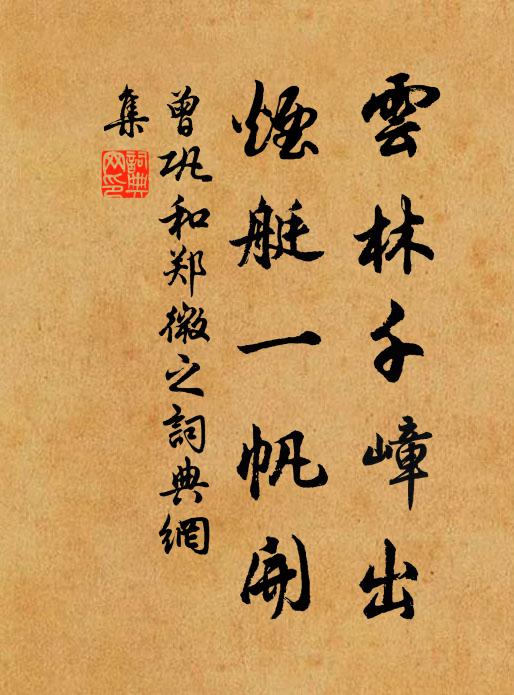 雲林千嶂出
煙艇一帆開
曾巩和郑微之詞典網
集
詞典网印